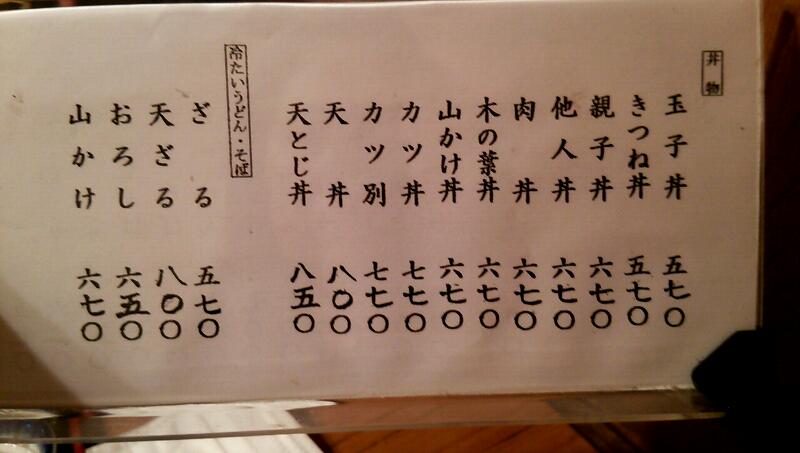 丼物
玉子丼 五七〇
きつね丼 五七〇
親子丼 六七〇
他人丼 六七〇
肉丼 六七〇
木の葉丼 六七〇
山かけ丼 六七〇
カツ丼 七七〇
カツ別 七七〇
天丼 八〇〇
天とじ丼 八五〇
冷たいうどん・そば
ざる 五七〇
天ざる 八〇〇
おろし 六五〇
山かけ 六七〇